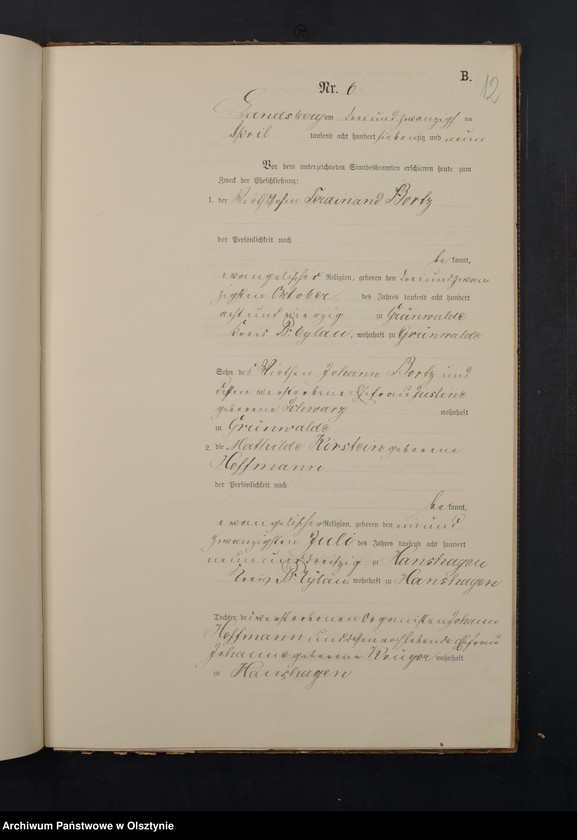 B.
12
Nr. 6
Landsberg am drei und zwanzigsten
April tausend acht hundert siebenzig und neun
Vor dem unterzeichneten Standesbeamten erschienen heute zum
Zweck der Eheschließung:
1. der Ferdinand Bortz
der Persönlichkeit nach
be kannt,
evangelischer Religion, geboren den drei und zwan
zigsten Oktober des Jahres tausend acht hundert
acht und vierzig zu Grünwalde
Kreis Pr. Eylau, wohnhaft zu Grünwalde
Sohn des Johann Bortz und
dessen verstorbene Ehefrau Justine
geborene Schwarz wohnhaft
zu Grünwalde
2. die Mathilde Kirstein geborene
Hoffmann
der Persönlichkeit nach
be kannt,
evangelischer Religion, geboren den und
zwanzigsten Juli des Jahres tausend acht hundert
neun und dreißig zu Hanshagen
Kreis Pr. Eylau wohnhaft zu Hanshagen
Tochter des verstorbenen Organisten Johann
Hoffmann und dessen noch lebende Ehefrau
Johanne geborene Krüger wohnhaft
zu Hanshagen
Archiwum Państwowe w Olsztynie